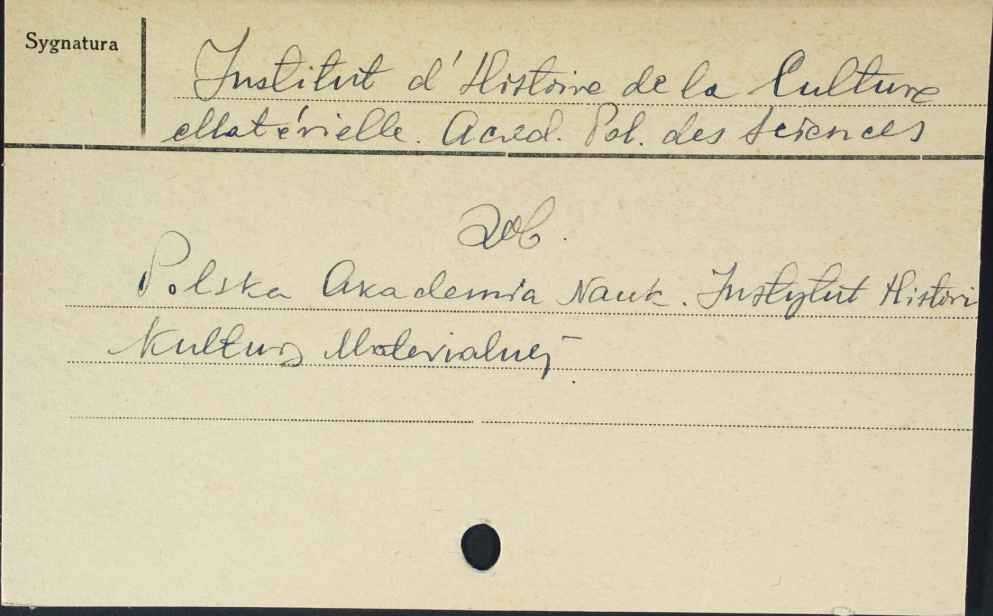 Sygnatura
Institut d'Histoire de la Culture
Matérielle. Acad. Pol. des Sciences
Zob.
Polska Akademia Nauk. Instytut Histori
Kultury Materialnej